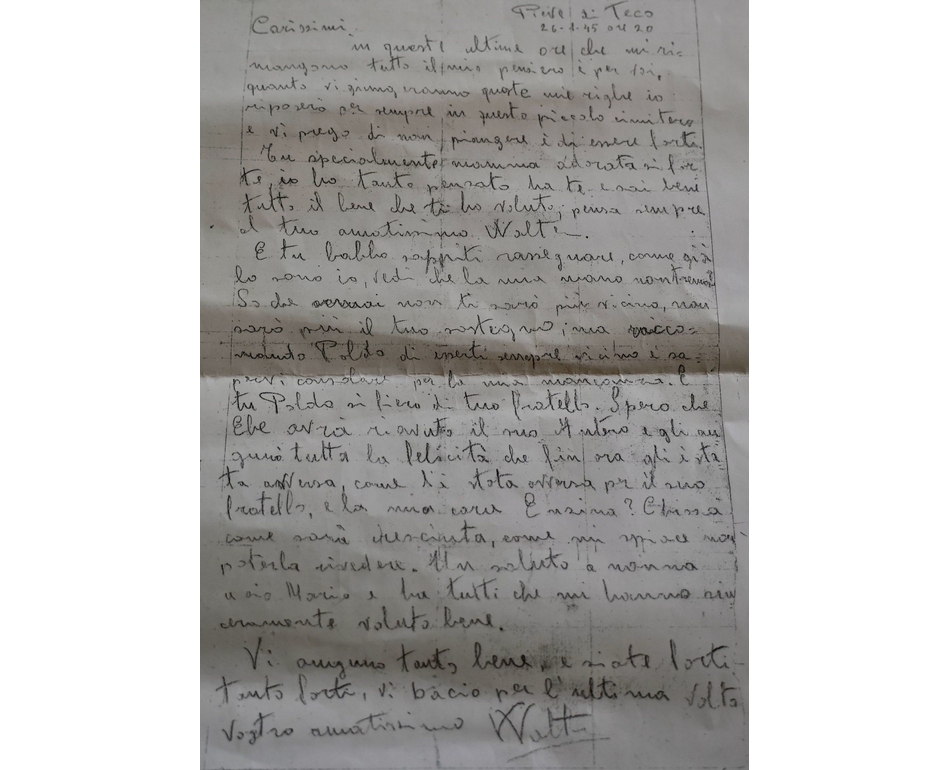 Pieve di Teco
26-1-45 ore 20
Carissimi,
in queste ultime ore che mi ri=
mangono tutto il mio pensiero è per voi,
quanto vi giungeranno queste mie righe io
riposerò per sempre in questo piccolo cimitero
e vi prego di non piangere e di essere forti.
Tu specialmente mamma adorata si for
te, io ho tanto pensato ha te e sai bene
tutto il bene che ti ho voluto, pensa sempre
al tuo amatissimo Walter.
E tu babbo sappiti rassegnare, come già
lo sono io, vedi che la mia mano non trema?
So che ormai non ti sarò più vicino, non
sarò più il tuo sostegno, ma racco=
mando Poldo di esserti sempre vicino e sa=
pervi consolare per la mia mancanza. E
tu Poldo si fiero di tuo fratello. Spero che
Ebe avrà riavuto il suo e gli au
guro tutta la felicità che fin ora gli è sta
ta avversa, come li è stata avversa per il suo
fratello, e la mia cara Enzina? Chissà
come sarà cresciuta, come mi spiace non
poterla rivedere. Un saluto a nonna
a zio Mario e ha tutti che mi hanno sin
ceramente voluto bene.
Vi auguro tanto bene, e siate forti
tanto forti, vi bacio per l'ultima volta
vostro amatissimo Walter